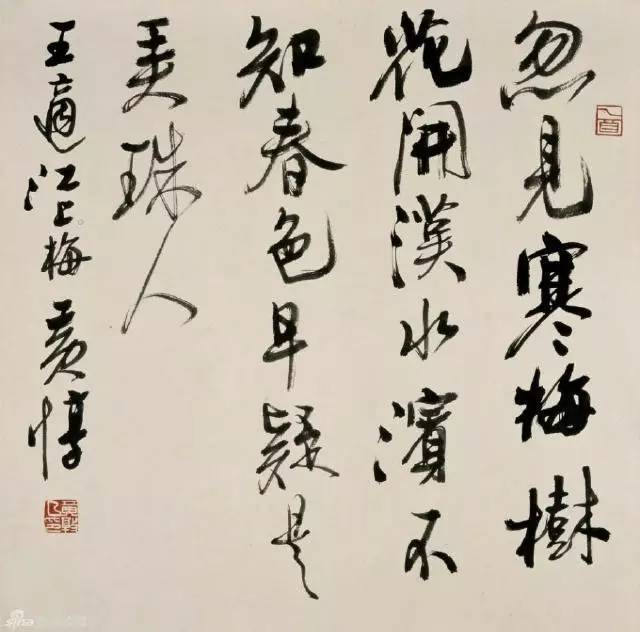 忽見寒梅樹
花開漢水濱不
知春色早疑是
弄珠人
王適江上梅 黃惇
sina